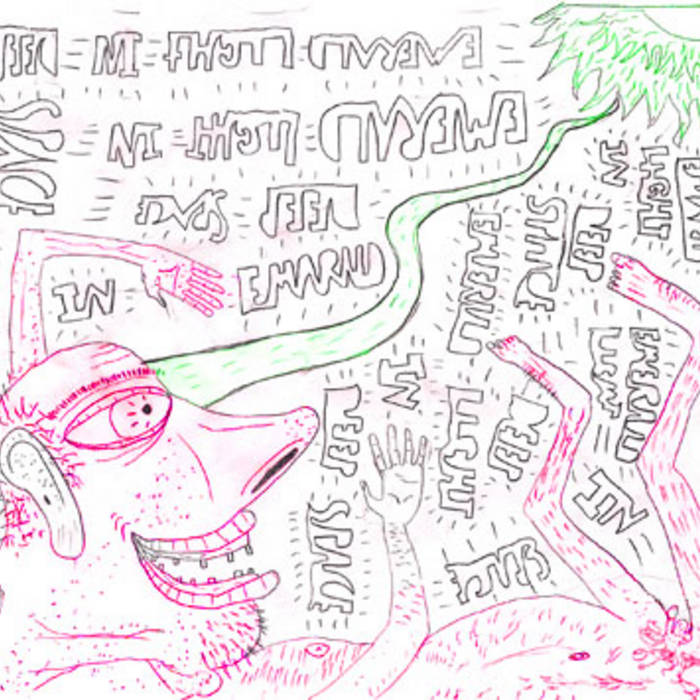 EMERALD LIGHT IN DEEP
SPACE
EMERALD LIGHT IN
DEEP SPACE
IN EMARALD
EMERALD
LIGHT
IN
DEEP
SPACE
EMERALD
LIGHT
IN
DEEP
SPACE
EMERALD
LIGHT
IN
DEEP
SPACE